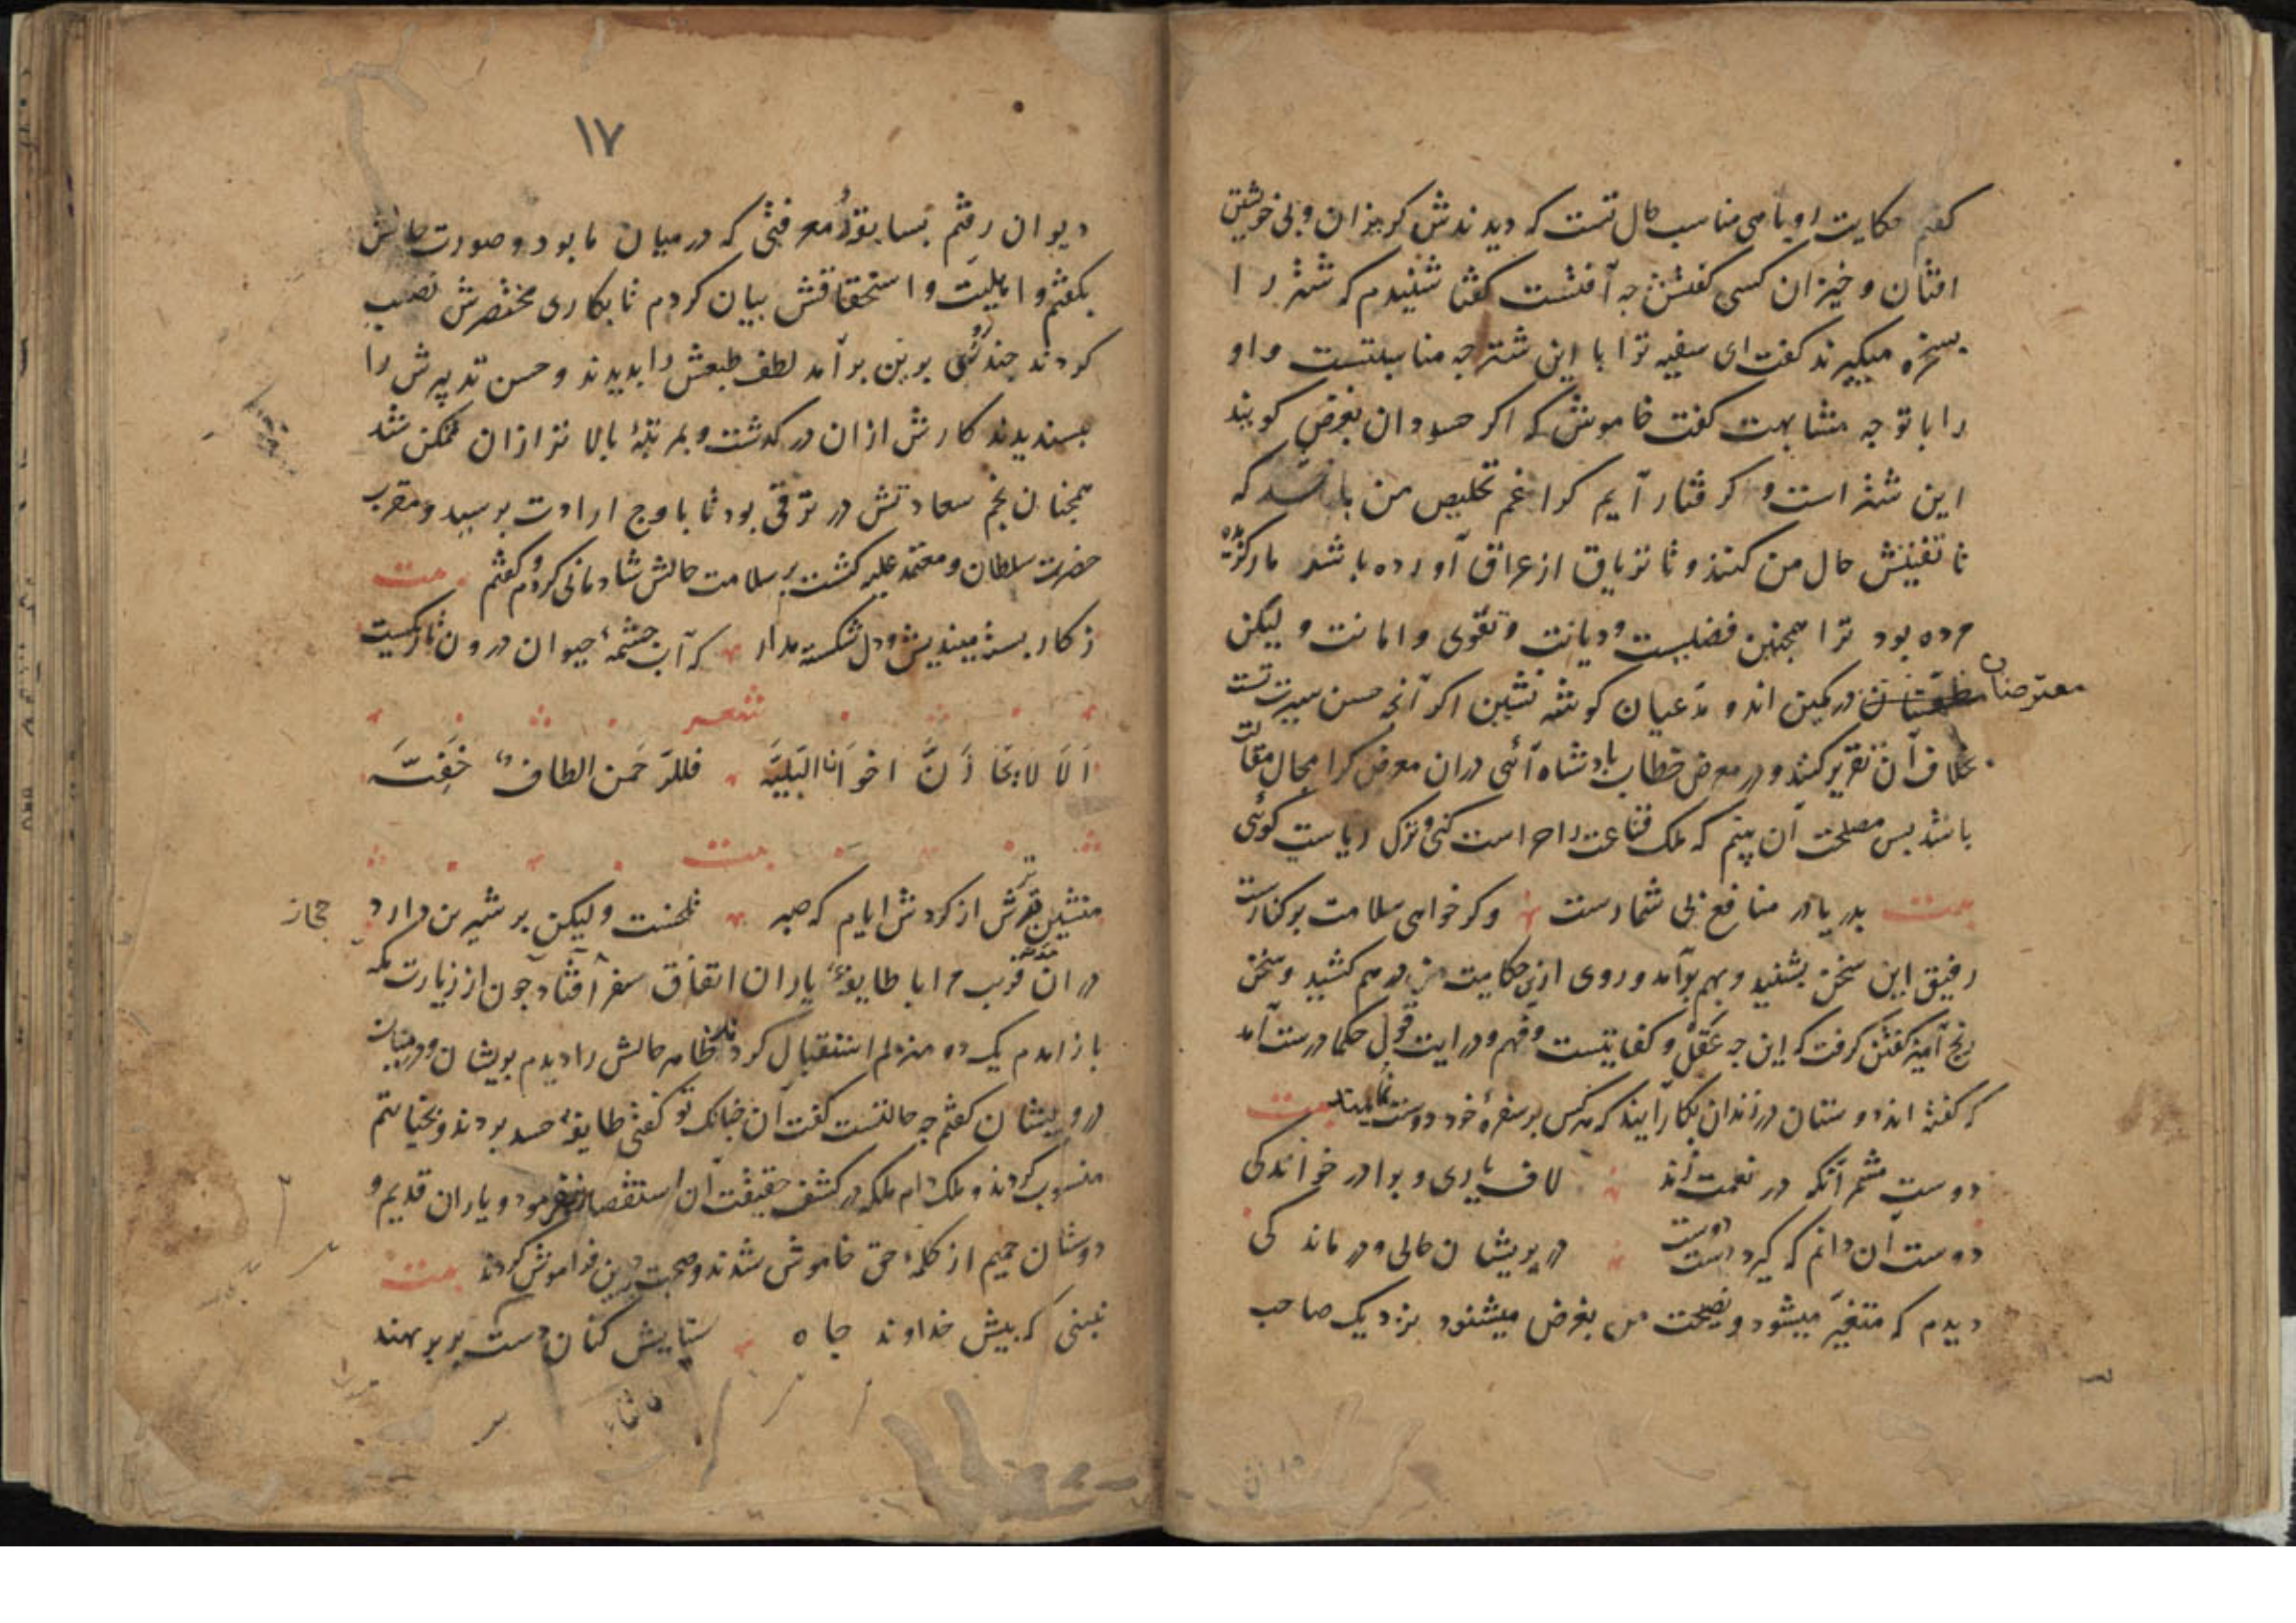 کفتم حکایت روباهی مناسب حال تست که دیدندش کریزان و بی خویشتن
افتان و خیزان کسی کفتش چه آفتست کفتا شنیدم که شتر را
بسخره میکیرند کفت ای سفیه ترا با این شتر چه مناسبتست و او
را با تو چه مشابهت کفت خاموش که اکر حسودان بغرض کویند
این شتر است و کرفتار آیم کرا غم تخلیص من باشد که
تا تفتیش حال من کند و تا تریاق از عراق آورده باشد مارکزیده
مرده بود ترا همچنین فضلیست و دیانت و تقوی و امانت و لیکن
معترضان در کمین اند و مدعیان کوشه نشین اکر آنچه حسن سیرت تست
بخلاف آن تقریر کنند و در معرض خطاب پادشاه آئی دران معرض کرا مجال مقالت
باشد پس مصلحت آن بینم که ملک قناعت را حراست کنی و ترک ریاست کوئی
بیت بدریا در منافع بی شمارست وکر خواهی سلامت بر کنارست
رفیق این سخن بشنید و بهم برآمد و روی ازین حکایت من درهم کشید و سخن
رنج آمیز کفتن کرفت که این چه عقل و کفایتست و فهم و درایت قول حکما درست آمد
که کفته اند دوستان در زندان بکار آیند که هرکس بر سفرهٔ خود دوست نمایند بیت
دوست مشمر آنکه در نعمت زند لاف یاری و برادر خواندکی
دوست آن دانم که کیرد دست دوست در پریشان حالی و درماندکی
دیدم که متغیر میشود و نصیحت من بغرض میشنود نزدیک صاحب
١٧
دیوان رفتم بسابقهٔ معرفتی که در میان ما بود و صورت حالش
بکفتم و اهلیت و استحقاقش بیان کردم تا بکاری مختصرش نصب
کردند چندی برین برآمد لطف طبعش را بدیدند و حسن تدبیرش را
بپسندیدند کارش ازان درکذشت و بمرتبهٔ بالاتر ازان ممکن شد
همچنان نجم سعادتش در ترقی بود تا باوج ارادت برسید و مقرب
حضرت سلطان و معتمد علیه کشت بر سلامت حالش شادمانی کردم و کفتم بیت
ز کار بسته میندیش و دل شکسته مدار که آب چشمهٔ حیوان درون تاریکیست
شعر
اَلَا لَا یَحْزَنَنَّ اخوَانا البَلِیَّه فللرَّحمن الطافٌ خَفِیَّه
بیت
منشین ترش از کردش ایام که صبر تلخست و لیکن بر شیرین دارد
دران مدت قریب مرا با طایفهٔ یاران اتفاق سفر افتاد چون از زیارت مکه
حجاز
بازامدم یک دو منزلم استقبال کرد ظاهر حالش را دیدم پریشان و در هیات
درویشان کفتم چه حالتست کفت آن چنانک تو کفتی طایفهٔ حسد بردند و بخیانتم
منسوب کردند و ملک دام ملکه در کشف حقیقت آن استقصا نفرمود و یاران قدیم و
دوستان حمیم از کلمهٔ حق خاموش شدند و صحبت دیرین فراموش کردند بیت
نبینی که پیش خداوند جاه ستایش کنان دست بر بر نهند